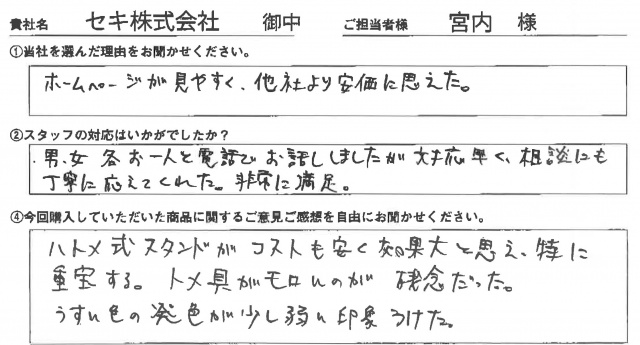 貴社名 セキ株式会社 御中 ご担当者様 宮内 様
①当社を選んだ理由をお聞かせください。
ホームページが見やすく、他社より安価に思えた。
②スタッフの対応はいかがでしたか？
・男、女 各お一人と電話でお話ししましたが対応早く、相談にも
丁寧に応えてくれた。非常に満足。
④今回購入していただいた商品に関するご意見ご感想を自由にお聞かせください。
ハトメ式スタンドがコストも安く効果大と思え、特に
重宝する。トメ具がモロいのが残念だった。
うすい色の発色が少し弱い印象うけた。